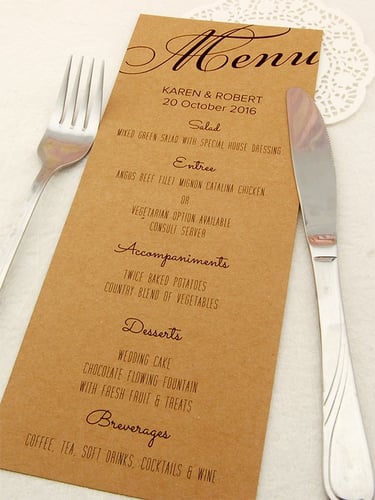 Menu
KAREN & ROBERT
20 October 2016
Salad
MIXED GREEN SALAD WITH SPECIAL HOUSE DRESSING
Entree
ANGUS BEEF FILET MIGNON CATALINA CHICKEN
OR
VEGETARIAN OPTION AVAILABLE
CONSULT SERVER
Accompaniments
TWICE BAKED POTATOES
COUNTRY BLEND OF VEGETABLES
Desserts
WEDDING CAKE
CHOCOLATE FLOWING FOUNTAIN
WITH FRESH FRUIT & TREATS
Breverages
COFFEE, TEA, SOFT DRINKS, COCKTAILS & WINE